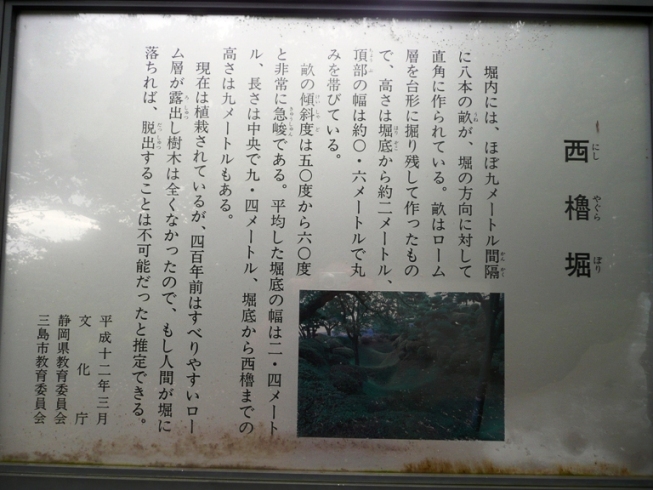 西櫓堀
にし やぐら ぼり
堀内には、ほぼ九メートル間隔
に八本の畝が、堀の方向に対して
直角に作られている。畝はローム
層を台形に掘り残して作ったもの
で、高さは堀底から約二メートル、
頂部の幅は約〇・六メートルで丸
みを帯びている。
畝の傾斜度は五〇度から六〇度
と非常に急峻である。平均した堀底の幅は二・四メート
ル、長さは中央で九・四メートル、堀底から西櫓までの
高さは九メートルもある。
現在は植栽されているが、四百年前はすべりやすいロー
ム層が露出し樹木は全くなかったので、もし人間が堀に
落ちれば、脱出することは不可能だったと推定できる。
平成十二年三月
文化庁
静岡県教育委員会
三島市教育委員会